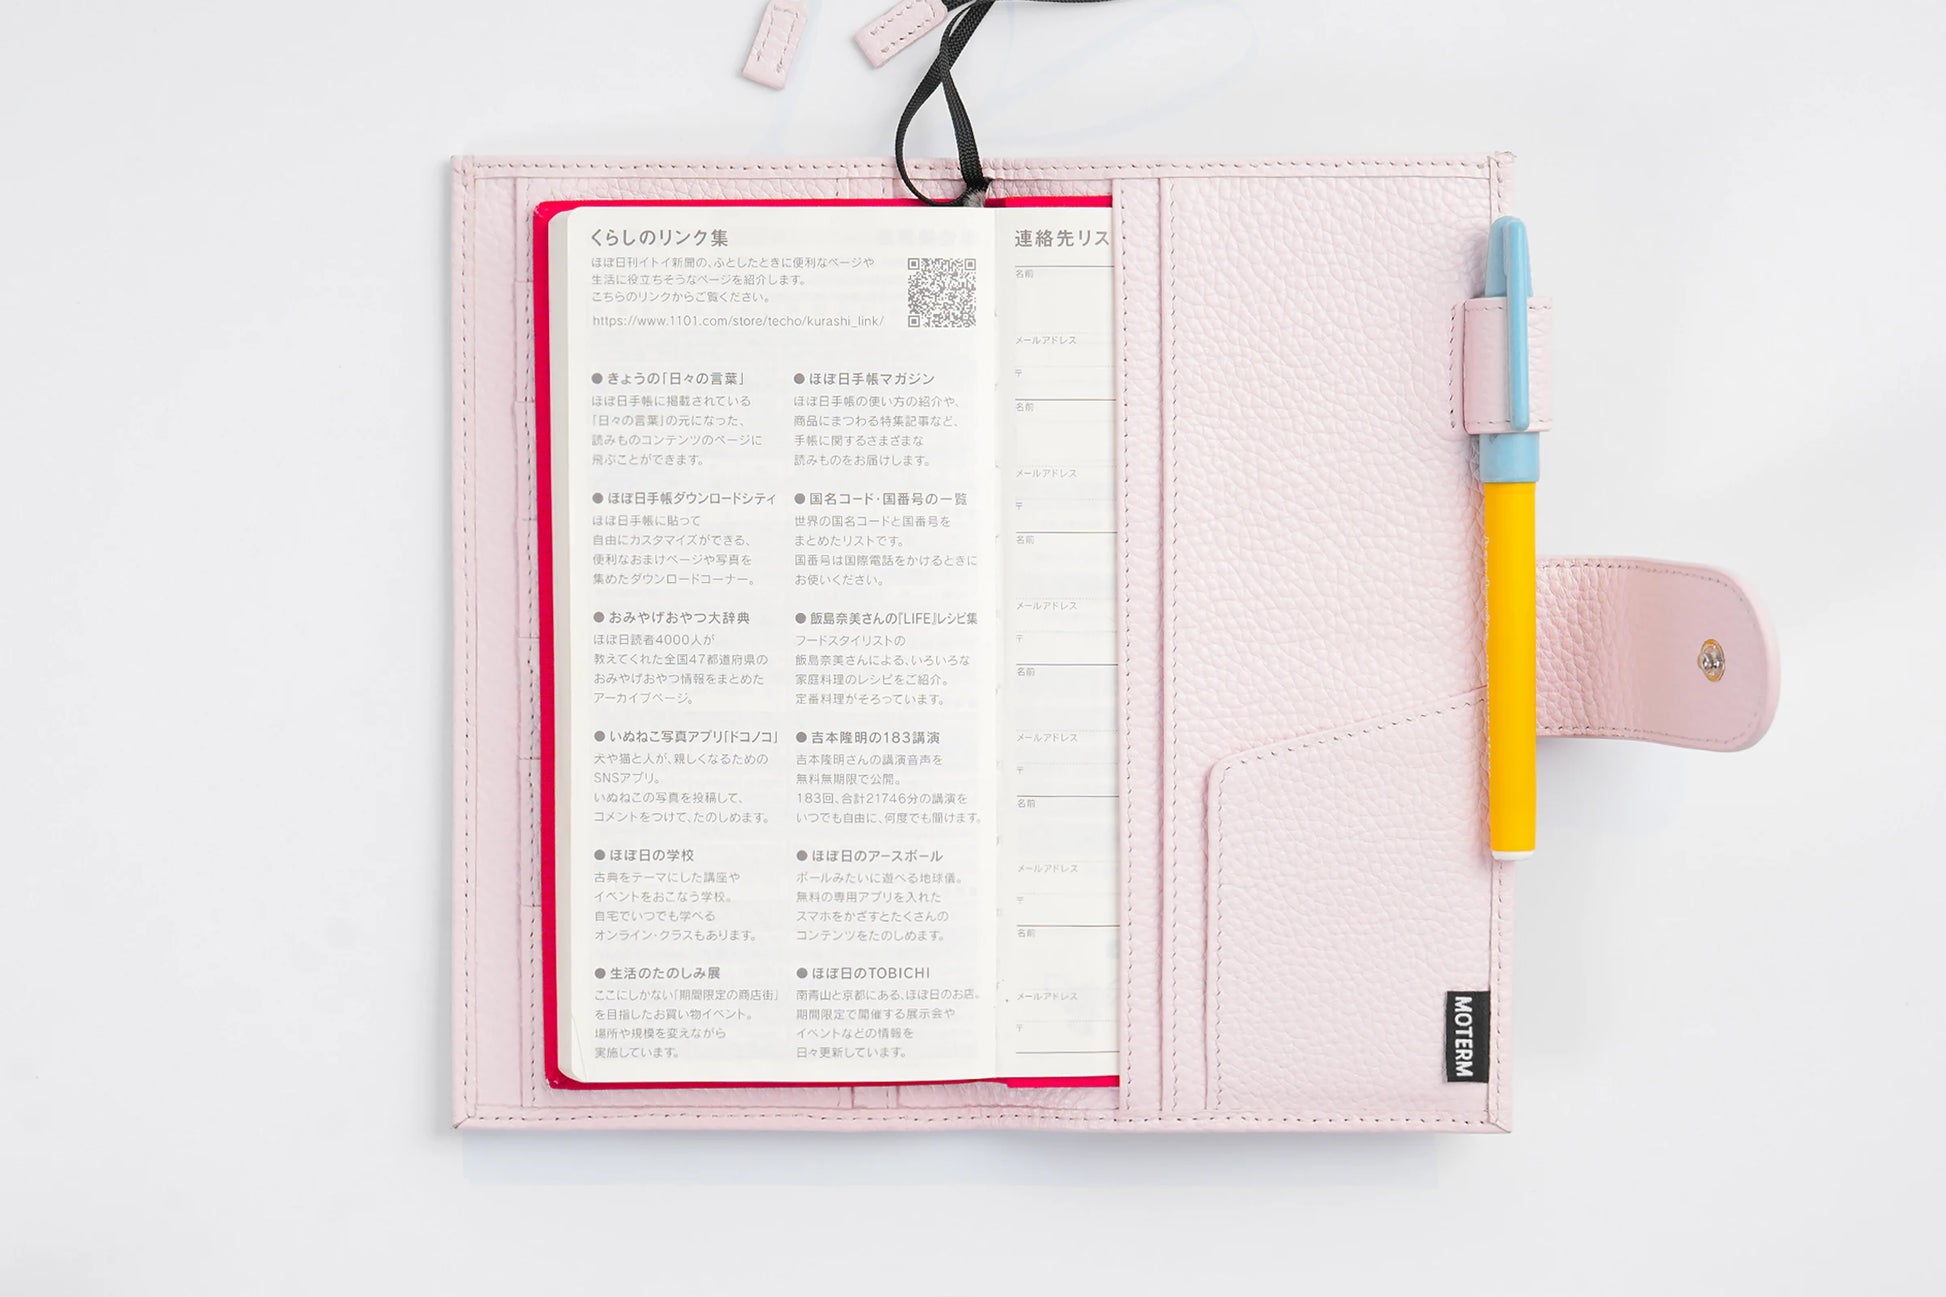 くらしのリンク集
ほぼ日刊イトイ新聞の、ふとしたときに便利なページや
生活に役立ちそうなページを紹介します。
こちらのリンクからご覧ください。
https://www.1101.com/store/techo/kurashi_link/
● きょうの「日々の言葉」
ほぼ日手帳に掲載されている
「日々の言葉」の元になった、
読みものコンテンツのページに
飛ぶことができます。
● ほぼ日手帳ダウンロードシティ
ほぼ日手帳に貼って
自由にカスタマイズができる、
便利なおまけページや写真を
集めたダウンロードコーナー。
● おみやげおやつ大辞典
ほぼ日読者4000人が
教えてくれた全国47都道府県の
おみやげおやつ情報をまとめた
アーカイブページ。
● いぬねこ写真アプリ「ドコノコ」
犬や猫と人が、親しくなるための
SNSアプリ。
いぬねこの写真を投稿して、
コメントをつけて、たのしめます。
● ほぼ日の学校
古典をテーマにした講座や
イベントをおこなう学校。
自宅でいつでも学べる
オンライン・クラスもあります。
● 生活のたのしみ展
ここにしかない「期間限定の商店街」
を目指したお買い物イベント。
場所や規模を変えながら
実施しています。
● ほぼ日手帳マガジン
ほぼ日手帳の使い方の紹介や、
商品にまつわる特集記事など、
手帳に関するさまざまな
読みものをお届けします。
● 国名コード・国番号の一覧
世界の国名コードと国番号を
まとめたリストです。
国番号は国際電話をかけるときに
お使いください。
● 飯島奈美さんの『LIFE』レシピ集
フードスタイリストの
飯島奈美さんによる、いろいろな
家庭料理のレシピをご紹介。
定番料理がそろっています。
● 吉本隆明の183講演
吉本隆明さんの講演音声を
無料無期限で公開。
183回、合計21746分の講演を
いつでも自由に、何度でも聞けます。
● ほぼ日のアースボール
ボールみたいに遊べる地球儀。
無料の専用アプリを入れた
スマホをかざすとたくさんの
コンテンツをたのしめます。
● ほぼ日のTOBICHI
南青山と京都にある、ほぼ日のお店。
期間限定で開催する展示会や
イベントなどの情報を
日々更新しています。
連絡先リス
名前
メールアドレス
〒
名前
メールアドレス
〒
名前
メールアドレス
〒
名前
メールアドレス
〒
名前
メールアドレス
〒
名前
メールアドレス
〒
MOTERM